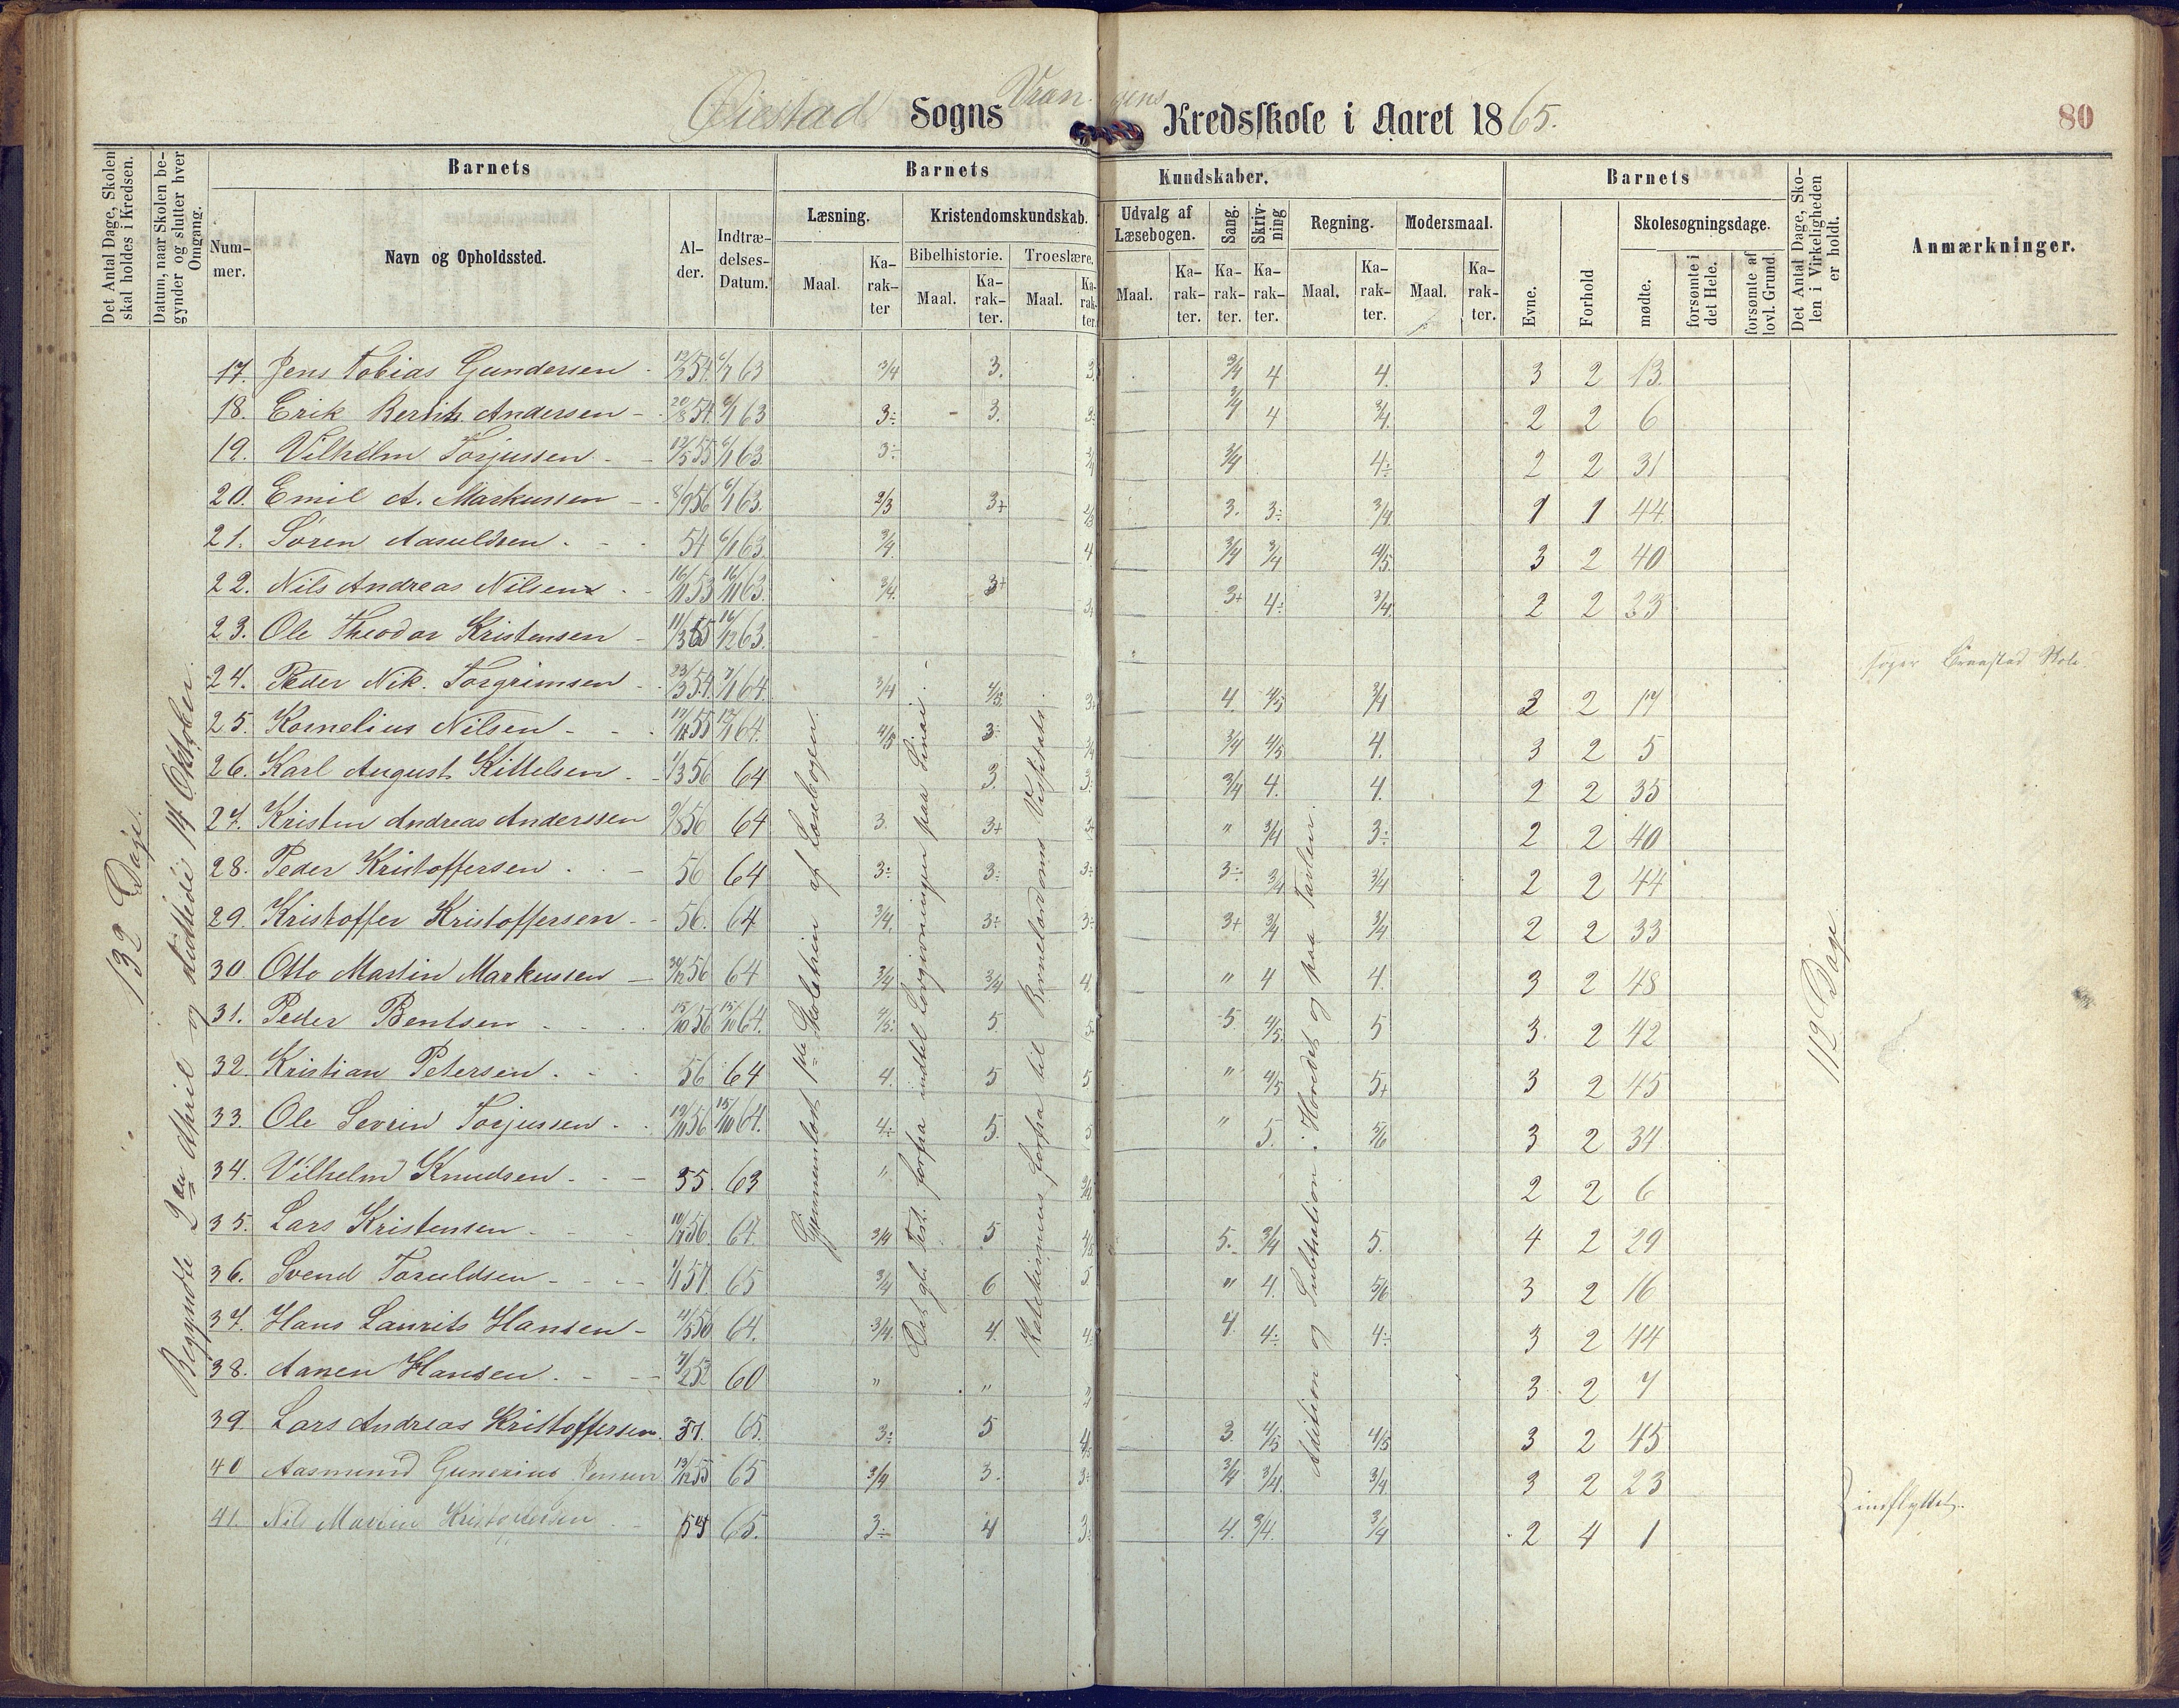 Øiestad Sogns Vrengens Kredsskole i Aaret 1865.
80
Det Antal Dage, Skolen skal holdes i Kredsen.
Datum, naar Skolen begynder og slutter hver Omgang.
Barnets
Nummer.
Navn og Opholdssted.
Alder.
Indtrædelses-Datum.
Barnets Kundskaber.
Læsning.
Maal.
Karakter
Kristendomskundskab.
Bibelhistorie.
Maal.
Karakter.
Troeslære.
Maal.
Karakter.
Udvalg af Læsebogen.
Maal.
Karakter.
Sang.
Karakter.
Skrivning
Karakter.
Regning.
Maal.
Karakter.
Modersmaal.
Maal.
Karakter.
Barnets
Evne.
Forhold
Skolesøgningsdage.
mødte.
forsømte i det Hele.
forsømte af lovl. Grund.
Det Antal Dage, Skolen i Virkeligheden er holdt.
Anmærkninger.
132 Dage.
Begyndte 2den April og sluttede 14 Oktober.
Gjennemløst 1ste Skoletrin af Læsebogen.
Det gl. Test. forfra indtil Lovgivningen paa Sinai.
Katekismus forfra til
Adition og Subtraktion i Hovedet og paa Tavlen.
112 Dage.
17. Jens Tobias Gundersen 12/2 54. 6/1 63 3/4 3. 3. 3/4 4 4. 3 2 13.
18. Erik Andersen 20/8 54. 6/1 63 3÷ 3. 3/4 4 3/4. 2 2 6
19. Vilhelm Torjussen 12/5 55 6/1 63. 3÷ 3/4 3/4 4÷ 2 2 31
20. Emil A. Markussen 8/9 56 6/1 63. 2/3 3+ 2/3 3. 3÷ 3/4 1 1 44
21. Søren Aasuldsen 54 6/1 63. 3/4 4 3/4 3/4 4/5. 3 2 40
22. Nils Andreas Nilsen 16/11 53 16/11 63. 3/4. 3+ 3+ 4÷ 3/4. 2 2 23
23. Ole Theodor Kristensen 11/3 55 16/12 63. søger Skole.
24. Peder Nik. Torgrimsen 23/3 54. 7/1 64. 3/4 4/5. 4. 4/5 3/4 3 2 17
25. Kornelius Nilsen 55 64. 4/5 3÷ 3/4 3/4 4/5 4. 3 2 5
26. Karl August Kittelsen 1/3 56 64 3. 3÷ 3/4 4. 4. 2 2 35
27. Kristen Andreas Anderssen 56 64 3. 3+ 3+ " 3/4 3÷ 2 2 40
28. Peder Kristoffersen 56 64 3÷ 3÷ 3÷ 3÷ 3/4 3/4 2 2 44
29. Kristoffer Kristoffersen 56. 64 3/4. 3÷ 3÷ 3+ 3/4 3/4 2 2 33
30 Otto Martin Markussen 56 64 3/4 3/4 4. " 4 4. 3 2 48
31. Peder Bentsen 15/10 56 15/10 64. 4/5. 5. 5. 5 4/5. 5 3. 2 42
32. Kristian Petersen 56 64 4. 5 5 " 4/5 5+ 3 2 45
33. Ole Sevrin Torjussen 19/11 56 15/10 64. 4÷ 5. 5. " 5. 5/6 3 2 34
34. Vilhelm Knudsen 55. 63 " 3/4 2 2 6
35. Lars Kristensen 56. 64. 3/4 5 4/5 5. 3/4 5. 4 2 29
36. Svend Taraldsen 57. 65 3/4 6 5. " 4. 5/6 3 2 16
37. Hans Laurits Hansen 56 64. 3/4. 4. 4. 4 4÷ 4÷ 3 2 44
38. Aanen Hansen 52 60 " " 3 2 7
39. Lars Andreas Kristoffersen. 57. 65. 3÷ 5 4/5 3. 4/5 4/5 3 2 45
40 Aasmund Gunerius Jensen 13/12 55 65 3/4 3. 3÷ 3/4 3/4. 3/4 3 2 23
41. Nils Martin Kristoffersen 54 65. 3÷ 4 3÷ 4. 3/4. 3/4 2 4 1
indflyttet.